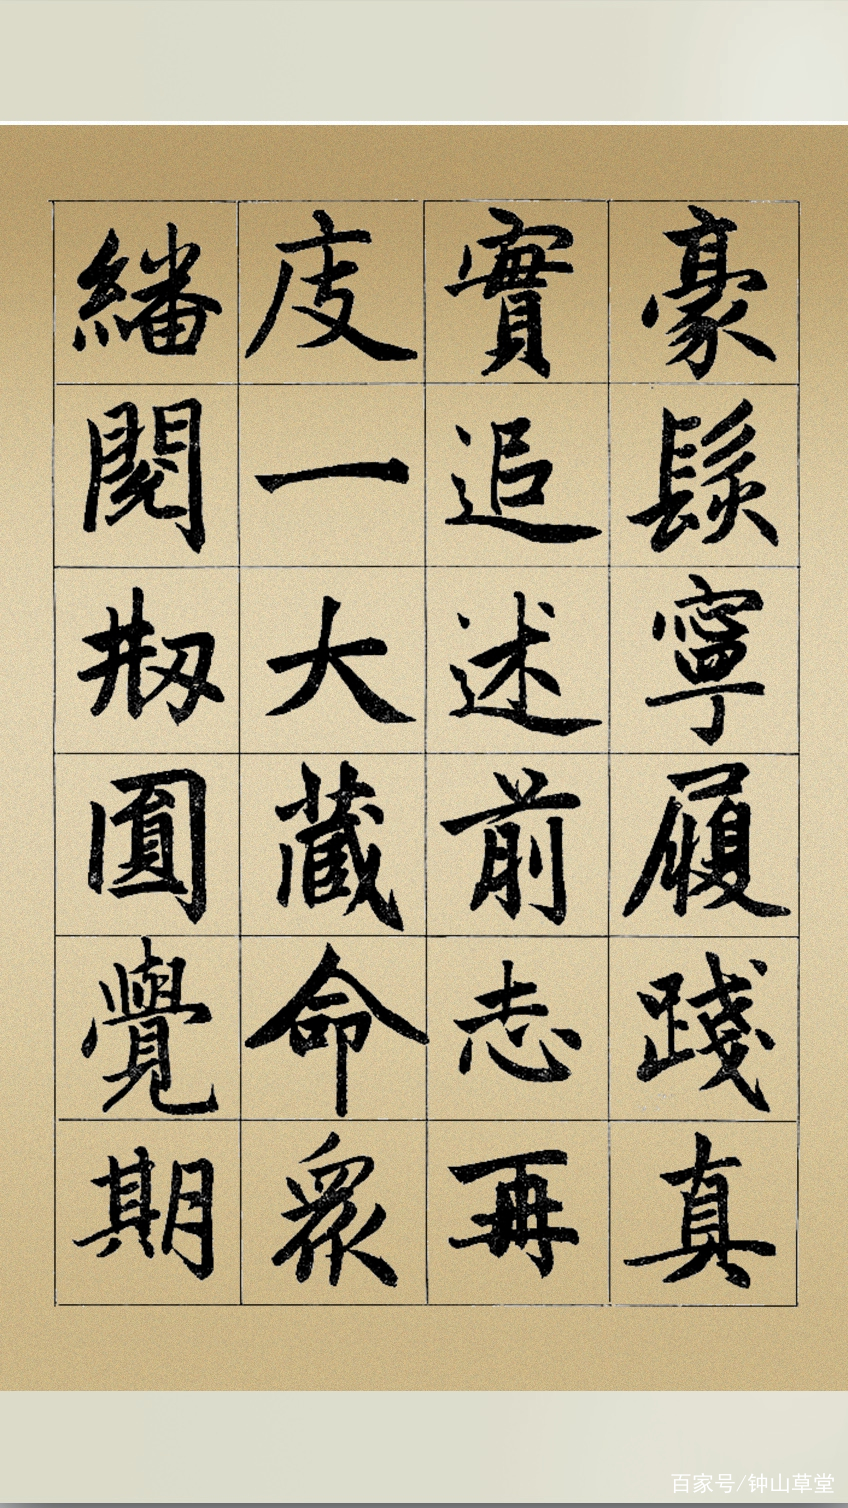 豪髮寧履踐真
實追述前志再
庋一大藏命眾
繙閱剏圓覺期
百家号/钟山草堂